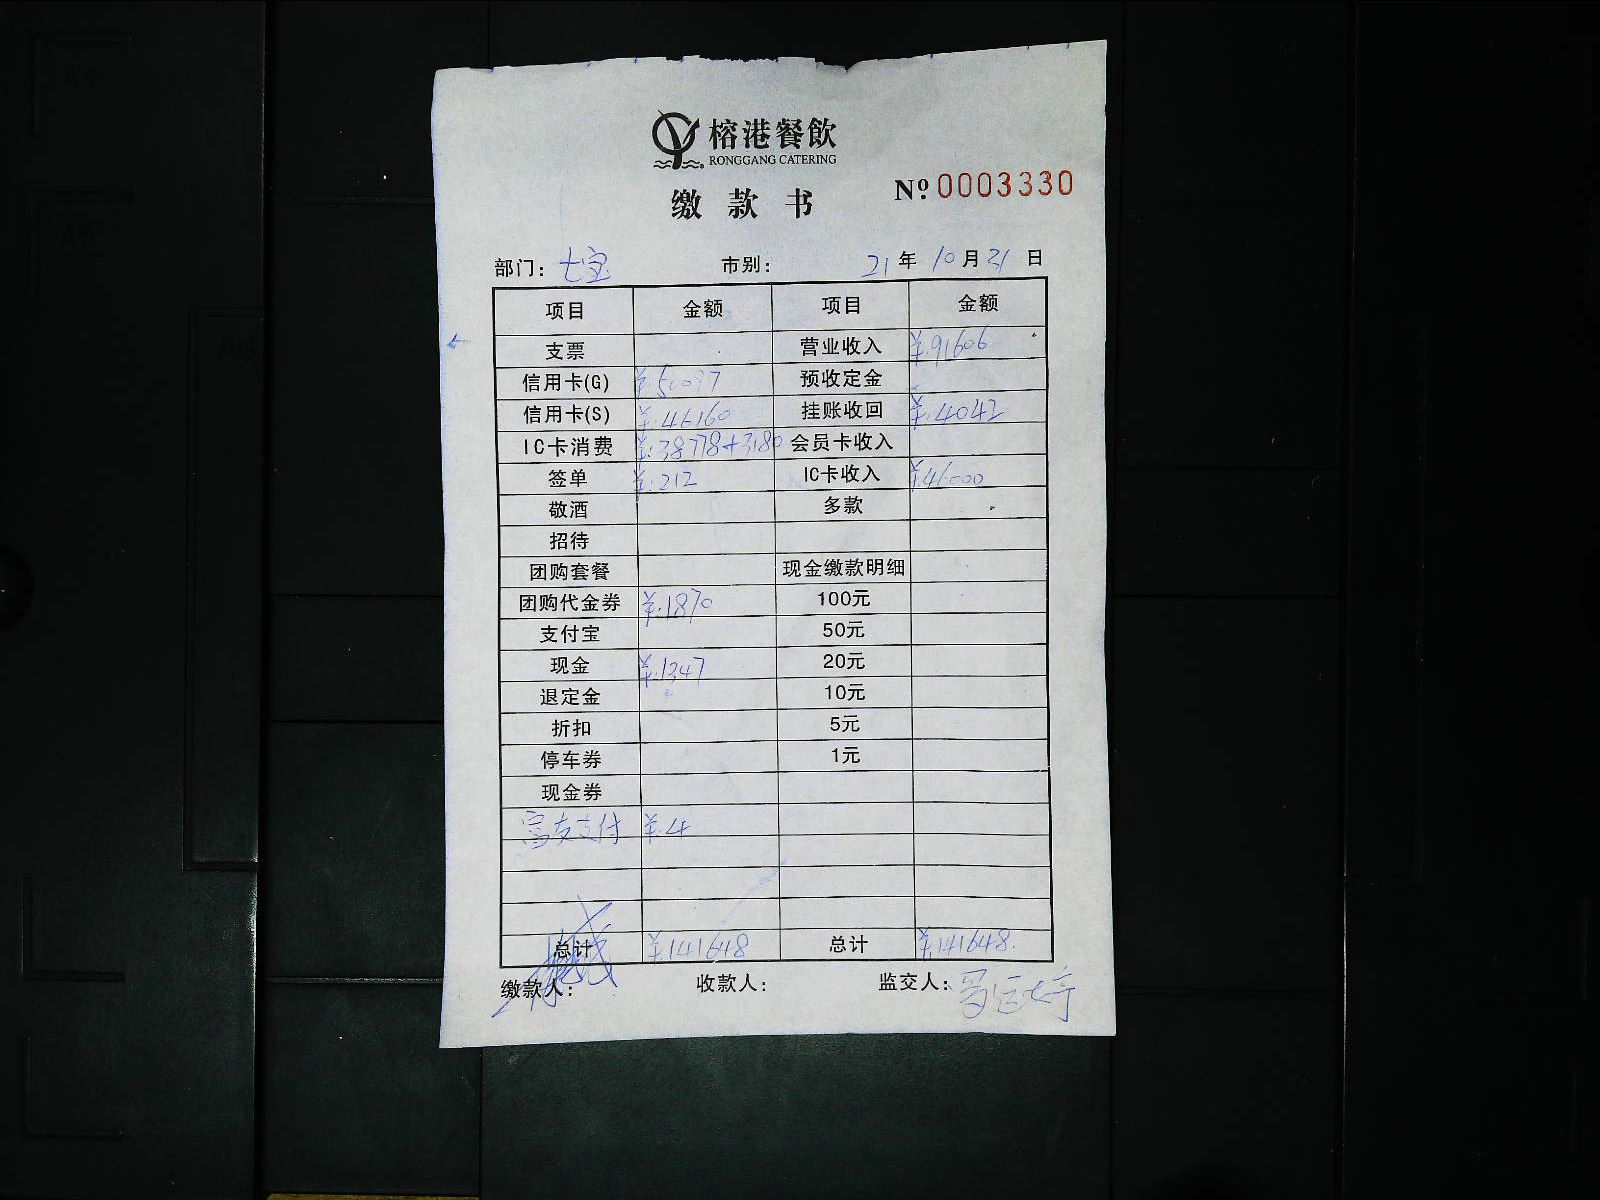 榕港餐飲
RONGGANG CATERING
缴款书
Nº 0003330
部门: 七宝 市别: 21年10月31日
项目 金额 项目 金额
支票 营业收入 ¥:91606
信用卡(G) ¥:50097 预收定金
信用卡(S) ¥:46160 挂账收回 ¥:4042
IC卡消费 ¥:38778+3180 会员卡收入
签单 ¥:212 IC卡收入 ¥:46000
敬酒 多款
招待
团购套餐 现金缴款明细
团购代金券 ¥:1870 100元
支付宝 50元
现金 ¥:1347 20元
退定金 10元
折扣 5元
停车券 1元
现金券
富友支付 ¥:4
总计 ¥:141648 总计 ¥:141648.
缴款人: 收款人: 监交人: